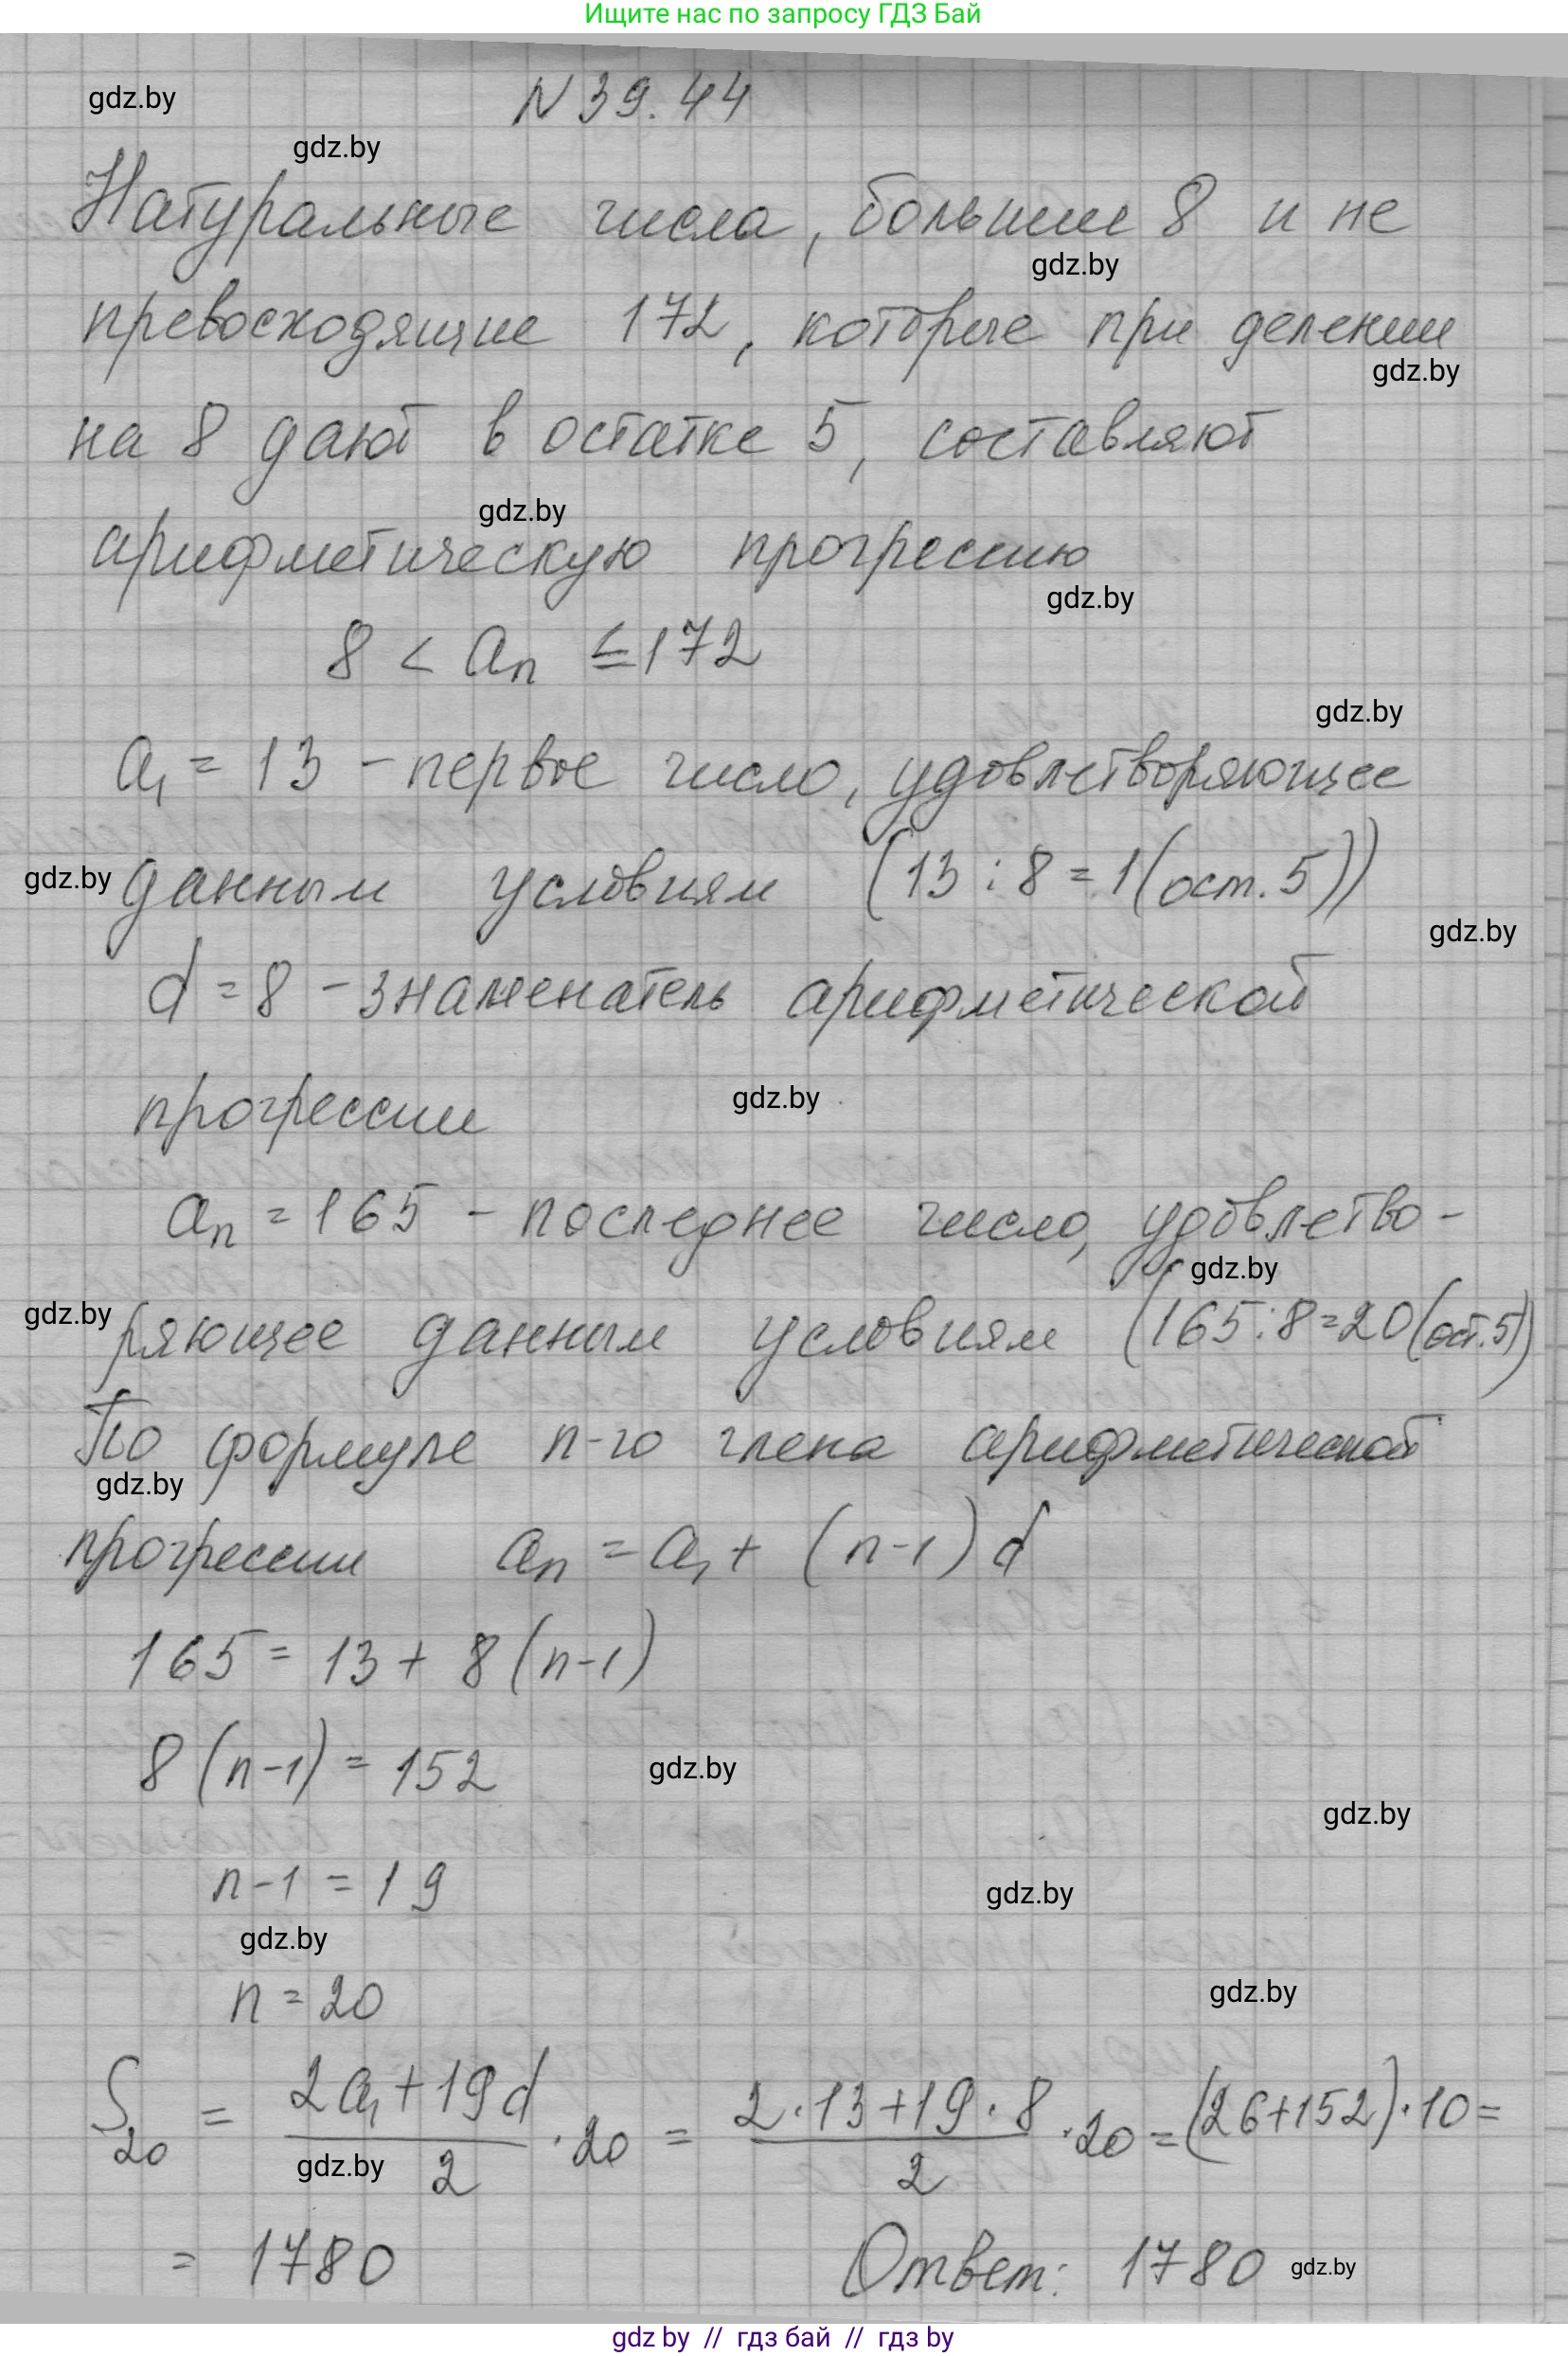 Ищите нас по запросу ГДЗ Бай
N 39.44
gdz.by
gdz.by
Натуральные числа, большие 8 и не
gdz.by
превосходящие 172, которые при делении
gdz.by
на 8 дают в остатке 5, составляют
gdz.by
арифметическую прогрессию
gdz.by
8 < aₙ ≤ 172
gdz.by
a₁ = 13 - первое число, удовлетворяющее
gdz.by данным условиям (13 : 8 = 1 (ост. 5))
gdz.by
d = 8 - знаменатель арифметической
прогрессии
gdz.by
aₙ = 165 - последнее число, удовлетво-
gdz.by
gdz.by
ряющее данным условиям (165 : 8 = 20 (ост. 5))
По формуле n-го члена арифметической
gdz.by
прогрессии aₙ = a₁ + (n-1) d
165 = 13 + 8 (n-1)
8 (n-1) = 152
gdz.by
gdz.by
n-1 = 19
gdz.by
gdz.by
n = 20
gdz.by
S₂₀ = (2a₁ + 19d)/2 · 20 = (2·13 + 19·8)/2 · 20 = (26+152)·10 =
gdz.by
= 1780 Ответ: 1780 gdz.by
gdz by // гдз бай // гдз by